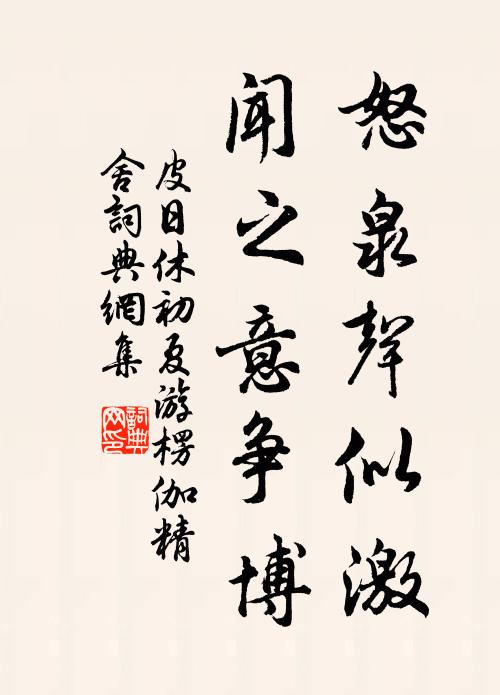 怒泉聲似激
聞之意争博
皮日休初夏游楞伽精
舍詞典網集
詞典网印